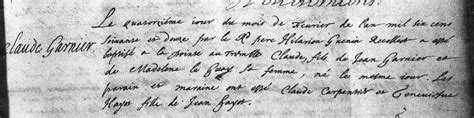 Claude Garnier.
Le quatorzième iour du mois de feurier de l'an mil six cens
soixante et douze par le R. pere Hilarion Guenin Recollect a esté
baptisé a la pointe au Claude, fils de Jean Garnier et
de Madelene le Guay sa femme, né le mesme iour. Les
parain et maraine ont esté Claude Carpentier et Geneuiefue
Hayot fille de Jean Hayot.